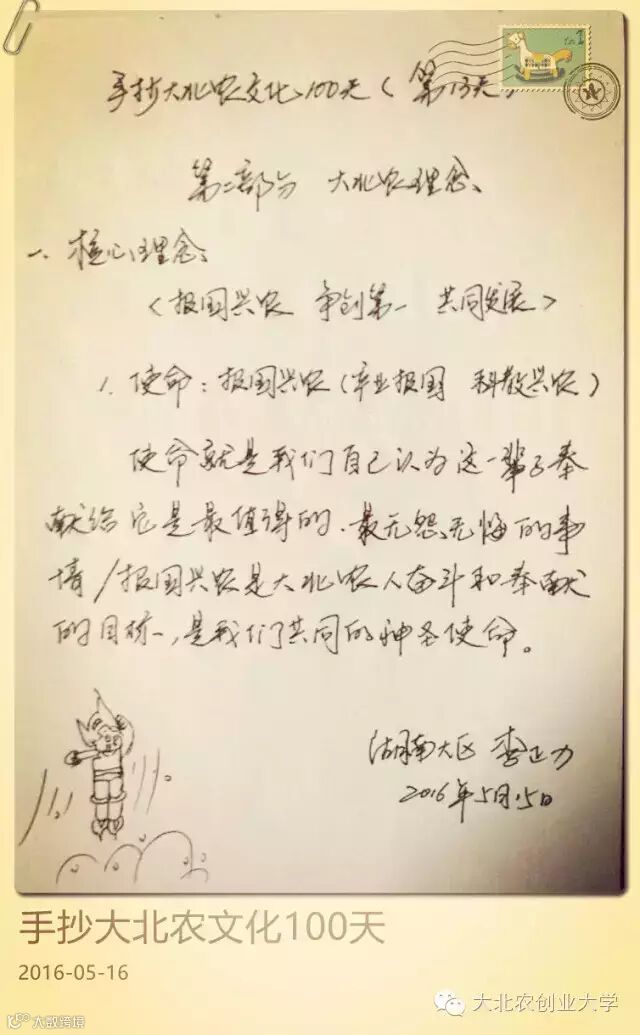 手抄大北农文化100天(第13天)
第二部分 大北农理念、
一、核心理念:
<报国兴农 争创第一 共同发展>
1. 使命:报国兴农(产业报国 科教兴农)
使命就是我们自己认为这一辈子奉
献给它是最值得的、最无怨无悔的事
情/报国兴农是大北农人奋斗和奉献
的目标,是我们共同的神圣使命。
湖南大区 李正力
2016年5月15日
手抄大北农文化100天
2016-05-16
大北农创业大学
大数跨境